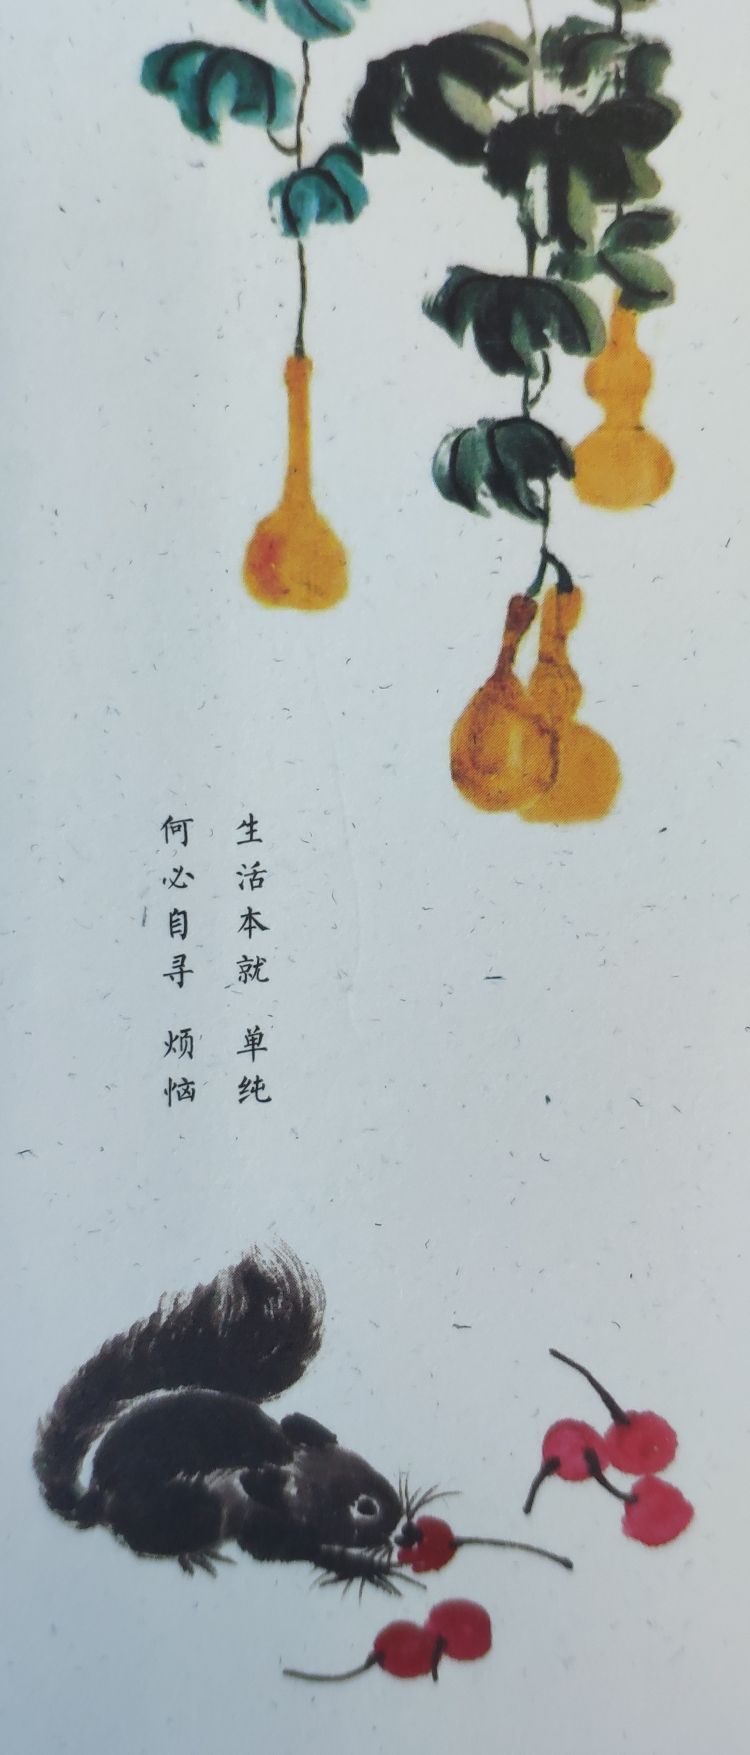 生活本就 单纯
何必自寻 烦恼